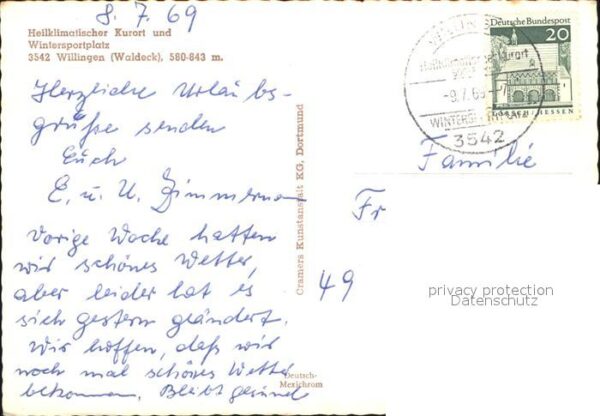 8. 7. 69
Heilklimatischer Kurort und
Wintersportplatz
3542 Willingen (Waldeck), 580-843 m.
Herzliche Urlaubs-
grüße senden
Euch
E. u. U. Zimmermann
Vorige Woche hatten
wir schönes Wetter,
aber leider hat es
sich gestern geändert.
Wir hoffen, daß wir
noch mal schönes Wetter
bekommen. Bleibt gesund
Cramers Kunstanstalt KG, Dortmund
Deutsch-
Mexichrom
Deutsche Bundespost
20
LORSCH/HESSEN
Heilklimatischer Kurort
-9.7.69
WINTERSPORTPLATZ
3542
Familie
Fr
49
privacy protection
Datenschutz